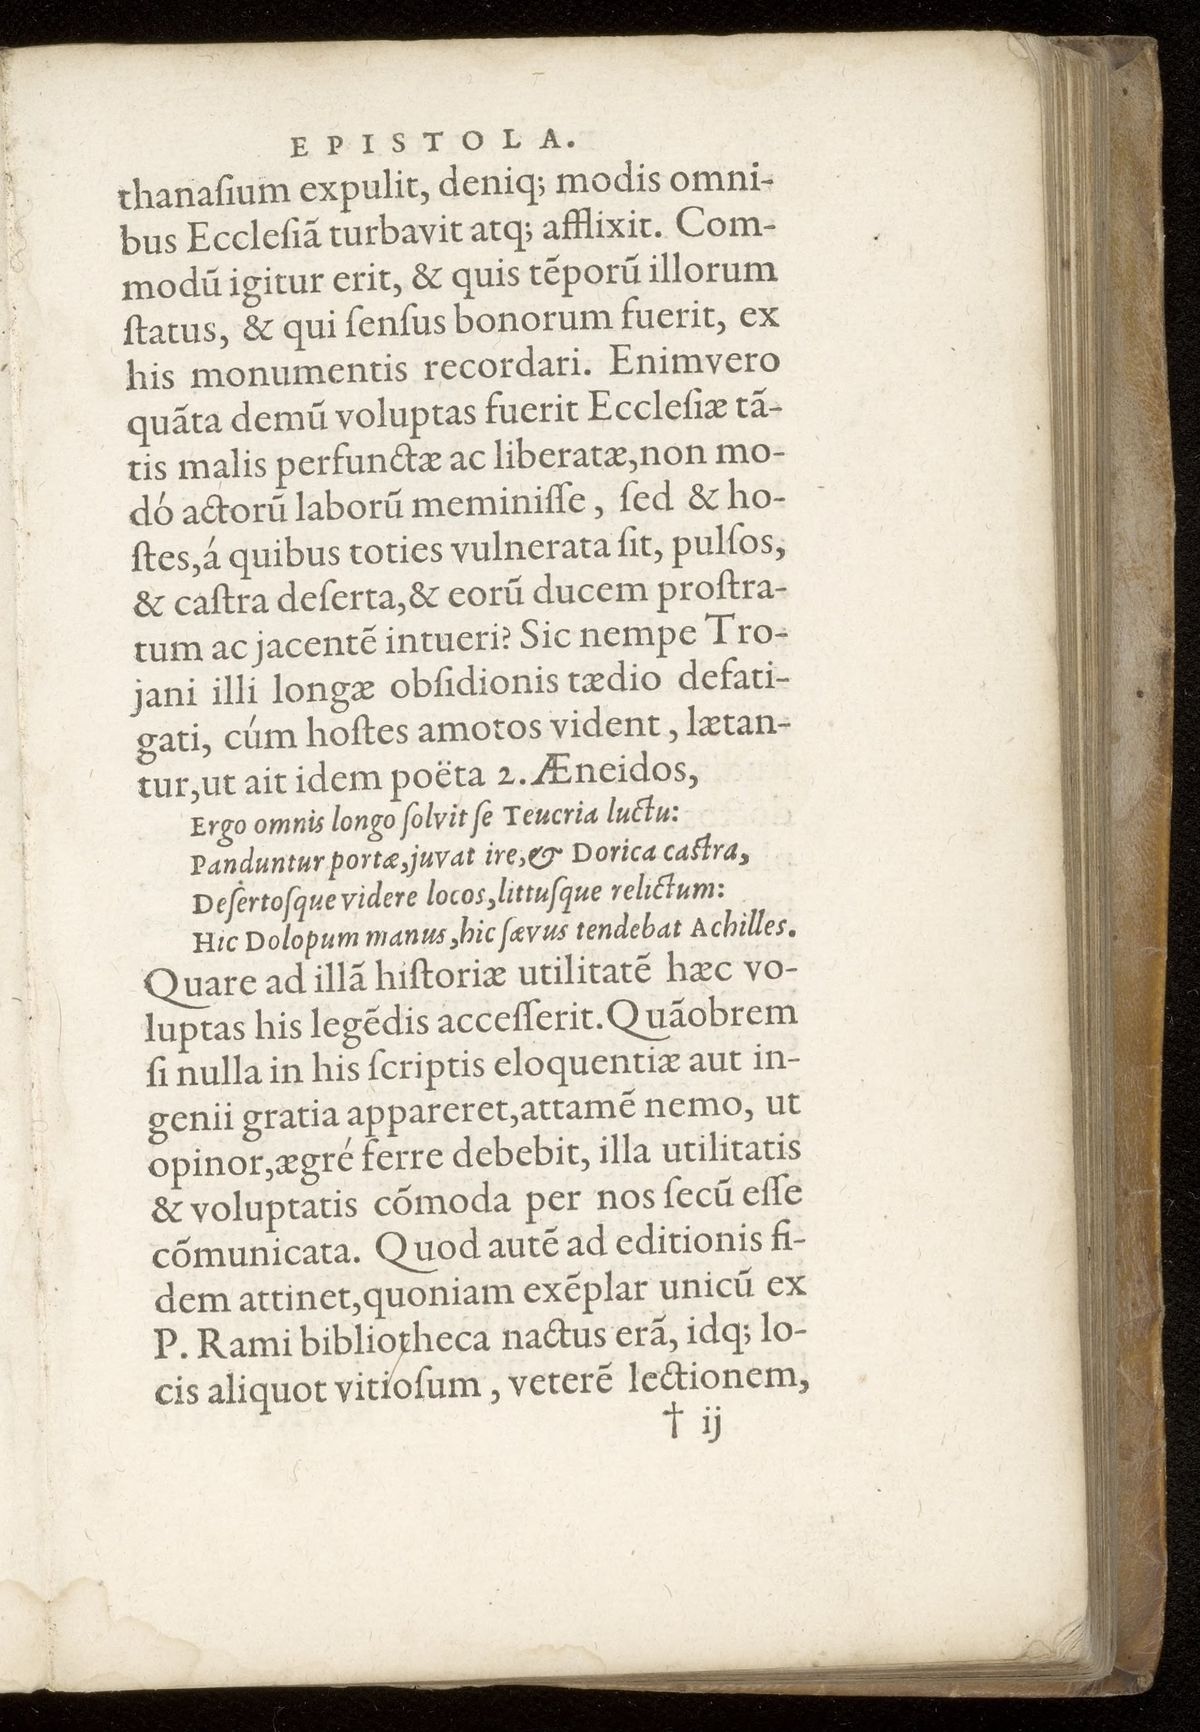 EPISTOLA.
thanaſium expulit, deniq; modis omni-
bus Eccleſiã turbavit atq; afflixit. Com-
modũ igitur erit, & quis tẽporũ illorum
ſtatus, & qui ſenſus bonorum fuerit, ex
his monumentis recordari. Enimvero
quãta demũ voluptas fuerit Eccleſiæ tã-
tis malis perfunctæ ac liberatæ, non mo-
dó actorũ laborũ meminiſſe, ſed & ho-
ſtes, á quibus toties vulnerata ſit, pulſos,
& caſtra deſerta, & eorũ ducem proſtra-
tum ac jacentẽ intueri? Sic nempe Tro-
jani illi longæ obſidionis tædio defati-
gati, cúm hoſtes amotos vident, lætan-
tur, ut ait idem poëta 2. Æneidos,
Ergo omnis longo ſolvit ſe Teucria luctu:
Panduntur portæ, juvat ire, & Dorica caſtra,
Deſertoſque videre locos, littuſque relictum:
Hic Dolopum manus, hic ſævus tendebat Achilles.
Quare ad illã hiſtoriæ utilitatẽ hæc vo-
luptas his legẽdis acceſſerit. Quãobrem
ſi nulla in his ſcriptis eloquentiæ aut in-
genii gratia appareret, attamẽ nemo, ut
opinor, ægré ferre debebit, illa utilitatis
& voluptatis cõmoda per nos ſecũ eſſe
cõmunicata. Quod autẽ ad editionis fi-
dem attinet, quoniam exẽplar unicũ ex
P. Rami bibliotheca nactus erã, idq; lo-
cis aliquot vitioſum, veterẽ lectionem,
† ij